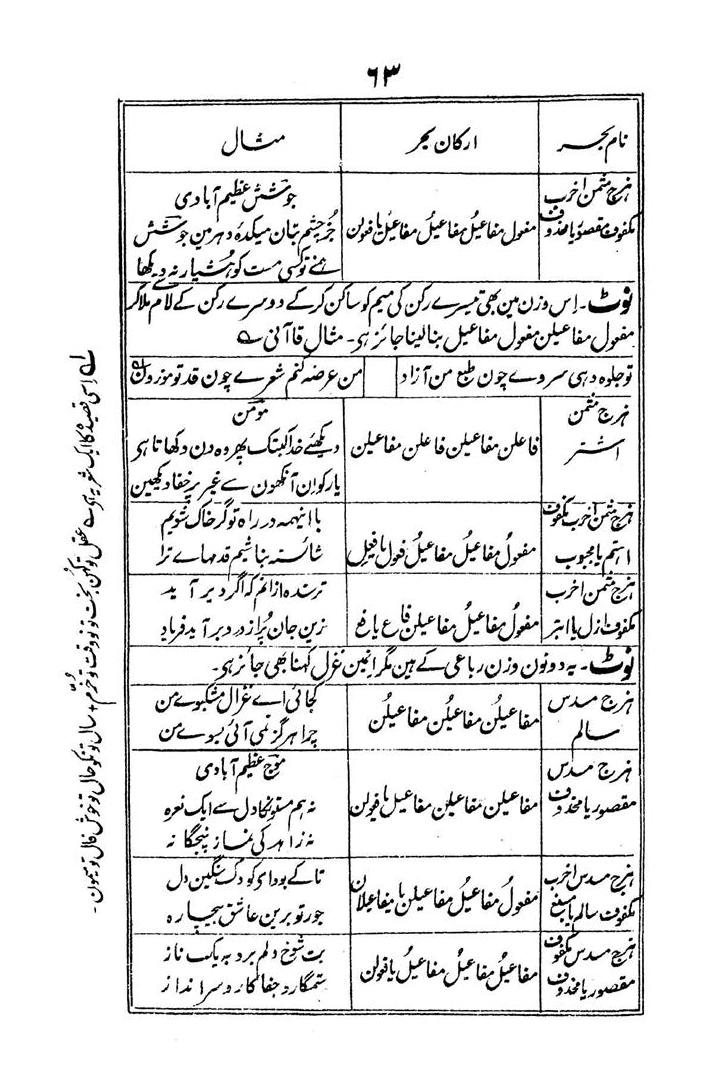 ۶۳
نام بحر
ارکان بحر
مثال
ہزج مثمن اخرب
مکفوف مقصور یا محذوف
مفعول مفاعیلُ مفاعیلُ مفاعیل یا فعولن
جوشش عظیم آبادی
جز چشم بتان میکدۂ دہر مین جوشش
ہمنے تو کسی مست کو ہشیار نہ دیکھا
نوٹ۔ اِس وزن مین بھی تیسرے رکن کی میم کو ساکن کرکے دوسرے رکن کے لام ملاکر
مفعول مفاعیلن مفعول مفاعیل بنا لینا جائز ہی۔ مثال قاآنی ؎
تو جلوہ دہی سروے چون طبع من آزاد
من عرضہ کنم شعرے چون قد تو موزون
ہزج مثمن
اشتر
فاعلن مفاعیلن فاعلن مفاعیلن
مومن
دیکھئے خدا کبتک پھر وہ دن دکھاتا ہی
یار کو اِن آنکھون سے غیر پر خفا دیکھین
ہزج مثمن اخرب مکفوف
اہتم یا مجبوب
مفعولُ مفاعیلُ مفاعیلُ فعول یا فعِل
با اینہمہ در راہ تو گر خاک شویم
شائستہ نباشیم قدمہاے ترا
ہزج مثمن اخرب
مکفوف ازل یا ابتر
مفعولُ مفاعیلُ مفاعیلن فاع یا فع
ترسندہ ازانم کہ اگر دیر آید
زین جان پُر از درد برآید فریاد
نوٹ۔ یہ دونون وزن رباعی کے ہین مگر انمین غزل کہنا بھی جائز ہی۔
ہزج مسدس
سالم
مفاعیلن مفاعیلن مفاعیلن
کجائی اے غزال مشکبوے من
چرا ہرگز نمی آئی بسوے من
ہزج مسدس
مقصور یا محذوف
مفاعیلن مفاعیلن مفاعیل یا فعولن
موج عظیم آبادی
نہ ہم مستونکا دل سے ایک نعرہ
نہ زاہد کی نماز پنجگانہ
ہزج مسدس اخرب
مکفوف سالم یا مسبغ
مفعولُ مفاعیلُ مفاعیلن یا مفاعیلان
تاکے بود اے کودک سنگین دل
جور تو برین عاشق بیچارہ
ہزج مسدس مکفوف
مقصور یا محذوف
مفاعیلُ مفاعیلُ مفاعیل یا فعولن
بت شوخ دلم برد بہ یک ناز
ستمگار و جفاکار و سرانداز
؎ اِسی قصیدہ کا ایک شعر یہ ہی ؎ عقل تو کہن بخت تو نو وقت تو خرم + سال تو نکو حال تو خوش فال تو میمون۔